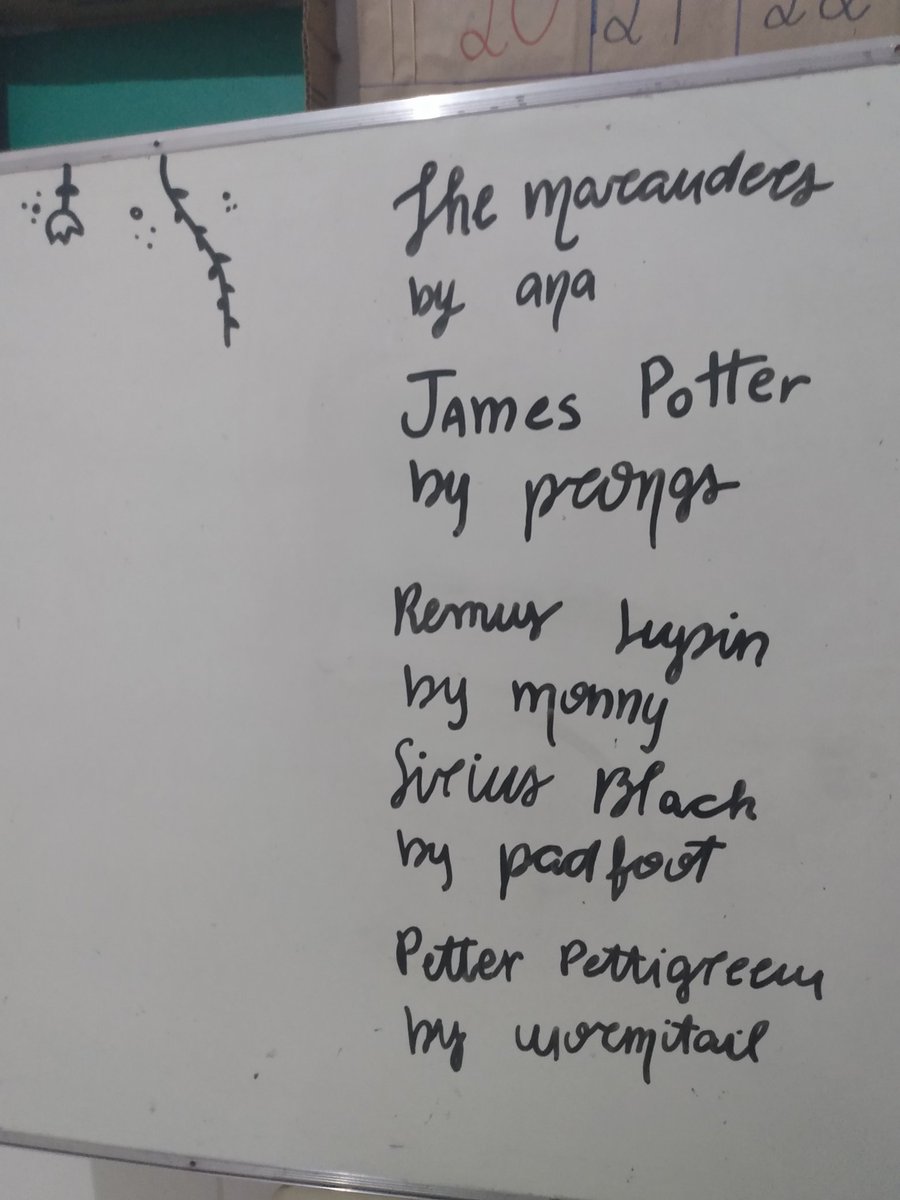 20 21 22
The marauders
by ana
James Potter
by prongs
Remus Lupin
by monny
Sirius Black
by padfoot
Petter Pettigreew
by wormitail